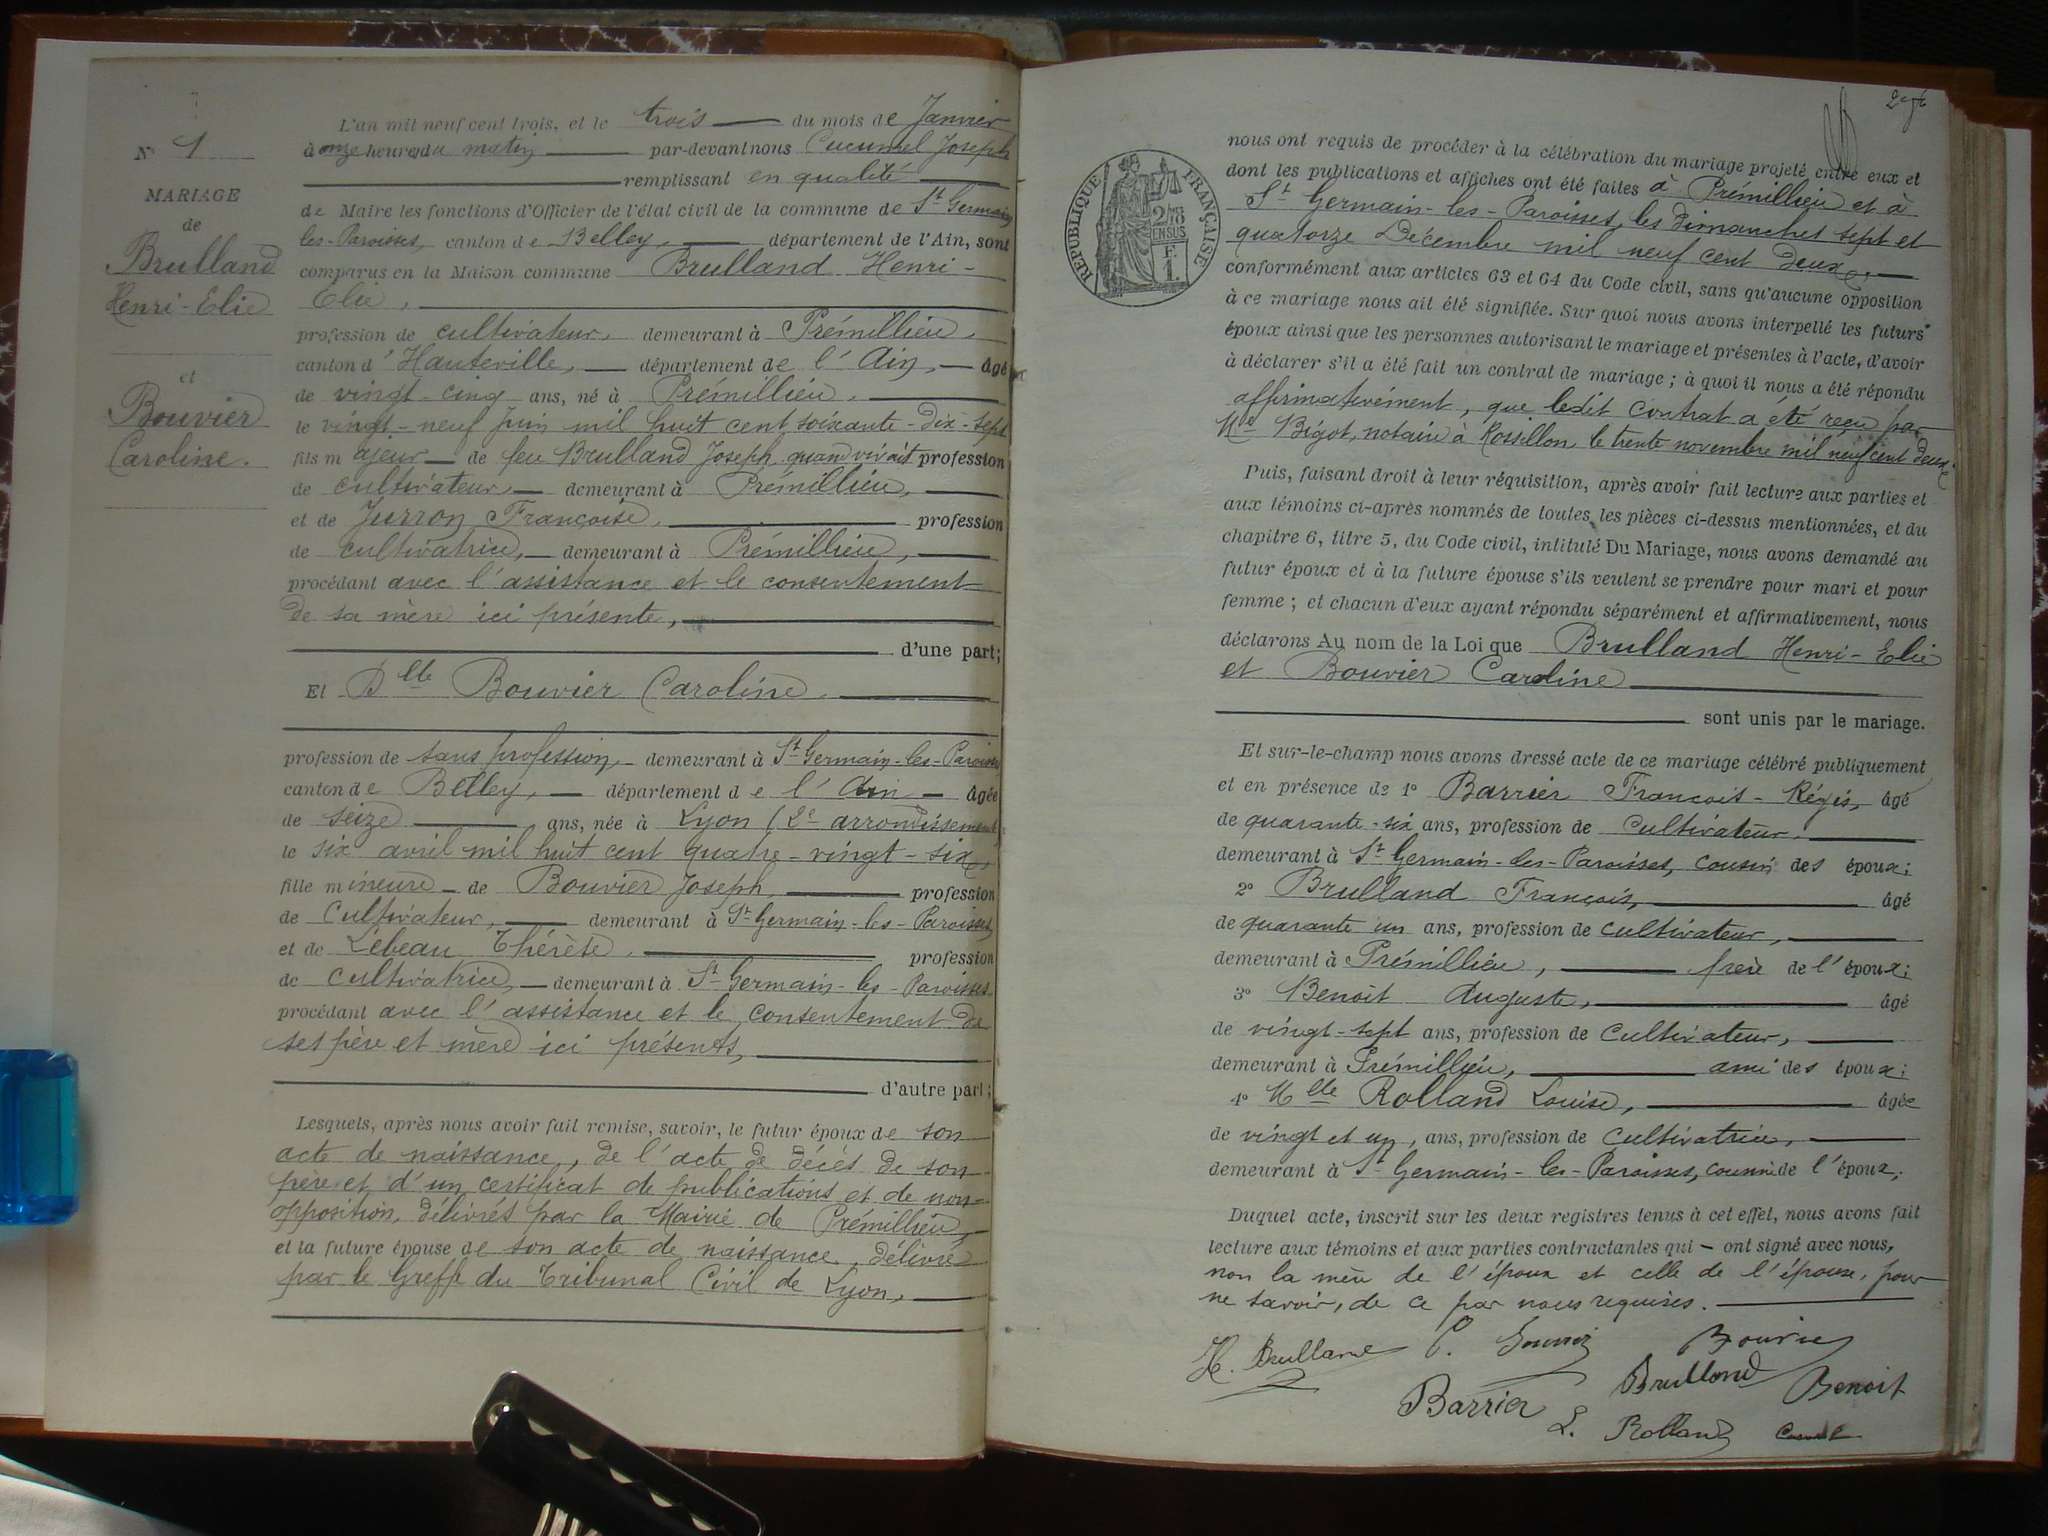 N° 1
MARIAGE
de
Brulland
Henri-Elie
et
Bouvier
Caroline.
L'an mil neuf cent trois, et le trois du mois de Janvier
à onze heures du matin par-devant nous Cucumel Joseph
remplissant en qualité
de Maire les fonctions d'Officier de l'état civil de la commune de St Germain
les-Paroisses, canton de Belley, département de l'Ain, sont
comparus en la Maison commune Brulland Henri-
Elie,
profession de cultivateur, demeurant à Prémillieu,
canton d'Hauteville, département de l'Ain, âgé
de vingt-cinq ans, né à Prémillieu,
le vingt-neuf Juin mil huit cent soixante-dix-sept
fils majeur de feu Brulland Joseph quand vivait profession
de cultivateur demeurant à Prémillieu,
et de Jurron Françoise, profession
de cultivatrice, demeurant à Prémillieu,
procédant avec l'assistance et le consentement
de sa mère ici présente,
d'une part;
Et Dlle Bouvier Caroline,
profession de sans profession, demeurant à St Germain-les-Paroisses
canton de Belley, département de l'Ain âgée
de seize ans, née à Lyon (2e arrondissement)
le six avril mil huit cent quatre-vingt-six,
fille mineure de Bouvier Joseph, profession
de cultivateur, demeurant à St Germain-les-Paroisses,
et de Lebeau Thérèse, profession
de cultivatrice, demeurant à St Germain-les-Paroisses
procédant avec l'assistance et le consentement de
ses père et mère ici présents,
d'autre part;
Lesquels, après nous avoir fait remise, savoir, le futur époux de son
acte de naissance, de l'acte de décès de son
père et d'un certificat de publications et de non-
opposition, délivrés par la Mairie de Prémillieu,
et la future épouse de son acte de naissance, délivré
par le Greffe du Tribunal Civil de Lyon,
RÉPUBLIQUE FRANÇAISE
2/10
EN SUS
F.
1.
nous ont requis de procéder à la célébration du mariage projeté entre eux et
dont les publications et affiches ont été faites à Prémillieu et à
St Germain-les-Paroisses, les dimanches sept et
quatorze Décembre mil neuf cent deux,
conformément aux articles 63 et 64 du Code civil, sans qu'aucune opposition
à ce mariage nous ait été signifiée. Sur quoi nous avons interpellé les futurs
époux ainsi que les personnes autorisant le mariage et présentes à l'acte, d'avoir
à déclarer s'il a été fait un contrat de mariage; à quoi il nous a été répondu
affirmativement, que ledit contrat a été reçu par
Me Bigot, notaire à Rossillon le trente novembre mil neuf cent deux.
Puis, faisant droit à leur réquisition, après avoir fait lecture aux parties et
aux témoins ci-après nommés de toutes les pièces ci-dessus mentionnées, et du
chapitre 6, titre 5, du Code civil, intitulé Du Mariage, nous avons demandé au
futur époux et à la future épouse s'ils veulent se prendre pour mari et pour
femme; et chacun d'eux ayant répondu séparément et affirmativement, nous
déclarons Au nom de la Loi que Brulland Henri-Elie
et Bouvier Caroline
sont unis par le mariage.
Et sur-le-champ nous avons dressé acte de ce mariage célébré publiquement
et en présence de 1° Barrier François-Régis, âgé
de quarante-six ans, profession de cultivateur,
demeurant à St Germain-les-Paroisses, cousin des époux;
2° Brulland François, âgé
de quarante un ans, profession de cultivateur,
demeurant à Prémillieu, frère de l'époux;
3° Benoit Auguste, âgé
de vingt-sept ans, profession de cultivateur,
demeurant à Prémillieu, ami des époux;
4° Mlle Rolland Louise, âgée
de vingt et un, ans, profession de cultivatrice,
demeurant à St Germain-les-Paroisses, cousine de l'époux;
Duquel acte, inscrit sur les deux registres tenus à cet effet, nous avons fait
lecture aux témoins et aux parties contractantes qui ont signé avec nous,
non la mère de l'époux et celle de l'épouse, pour
ne savoir, de ce par nous requises.
H. Brulland C. Bouvier Bouvier
Brulland Benoit
Barrier
L. Rolland